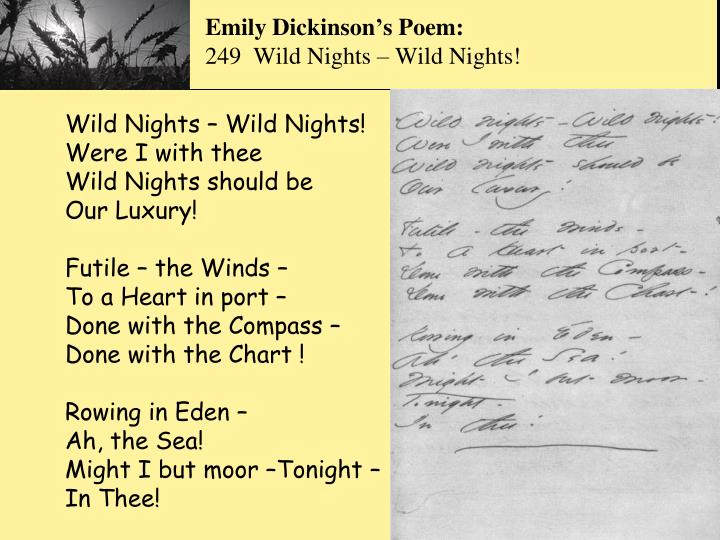 Emily Dickinson’s Poem:
249 Wild Nights – Wild Nights!
Wild Nights – Wild Nights!
Were I with thee
Wild Nights should be
Our Luxury!
Futile – the Winds –
To a Heart in port –
Done with the Compass –
Done with the Chart !
Rowing in Eden –
Ah, the Sea!
Might I but moor –Tonight –
In Thee!
Wild nights - Wild nights!
Were I with thee
Wild nights should be
Our Luxury!
Futile - the winds -
To a Heart in port -
Done with the Compass -
Done with the Chart -!
Rowing in Eden -
Ah! the Sea!
Might I but moor -
Tonight -
In thee!